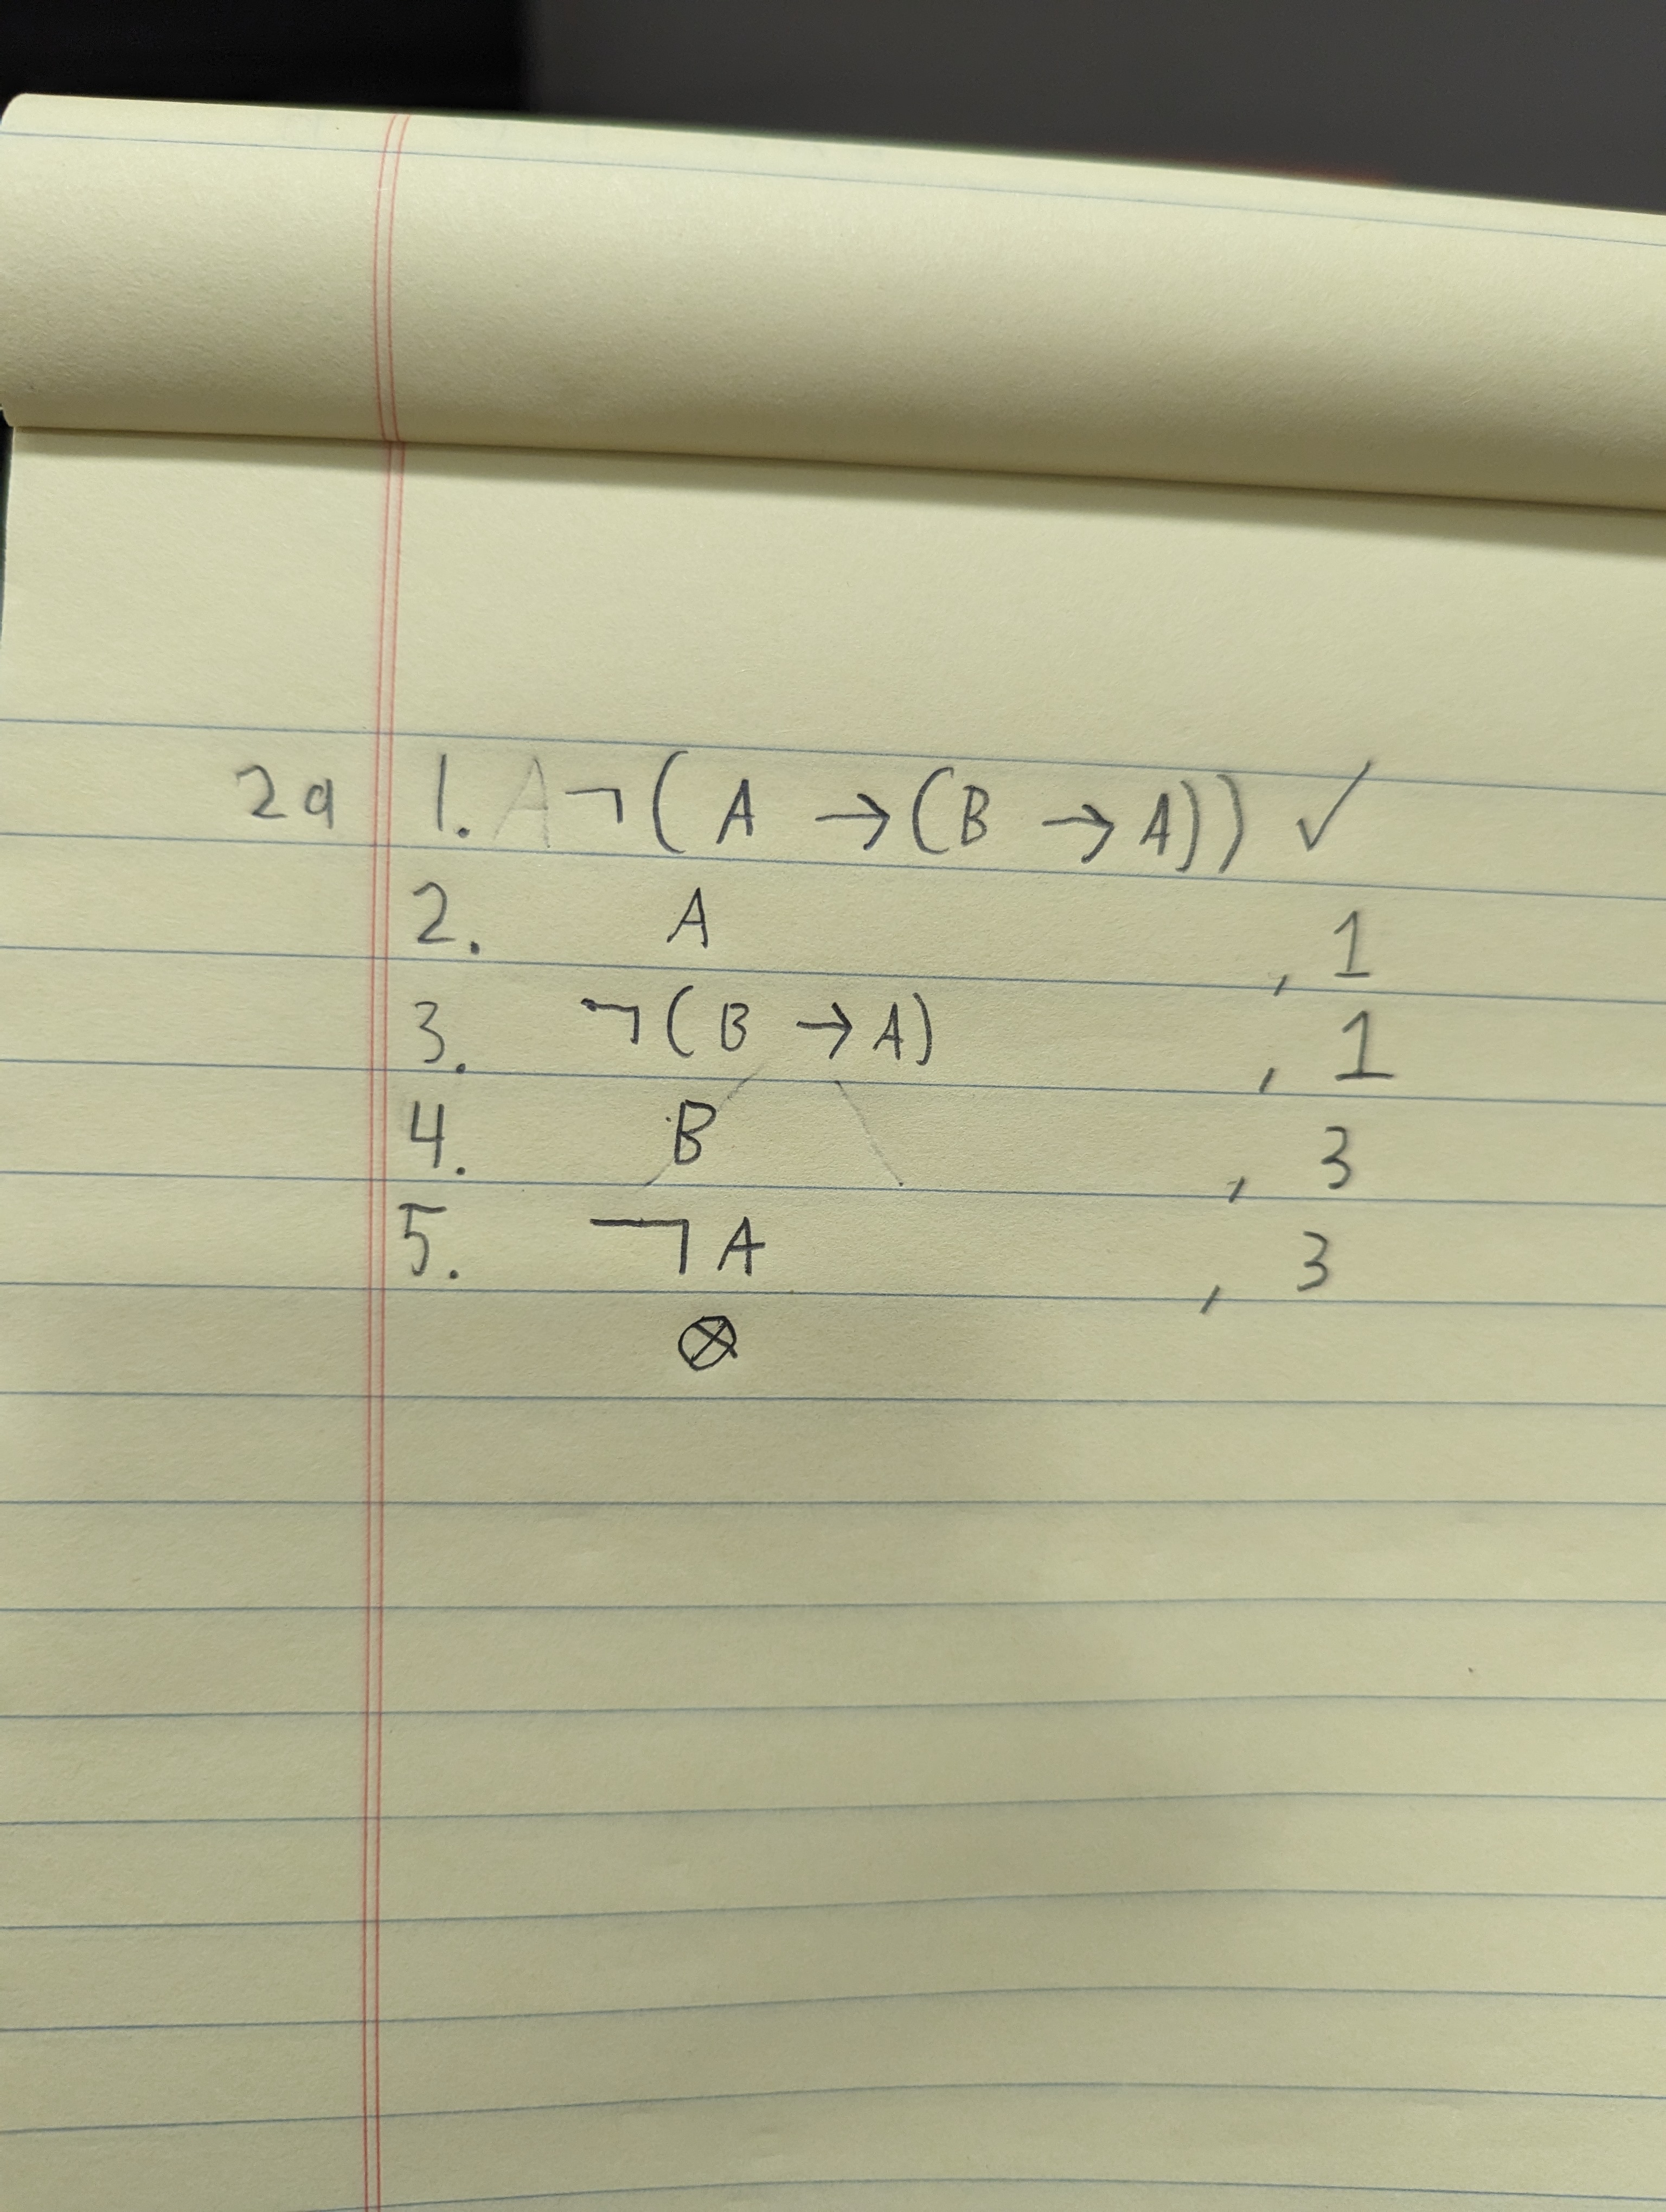 2a 1. ¬(A → (B → A)) ✓
2. A , 1
3. ¬(B → A) , 1
4. B , 3
5. ¬A , 3
⊗